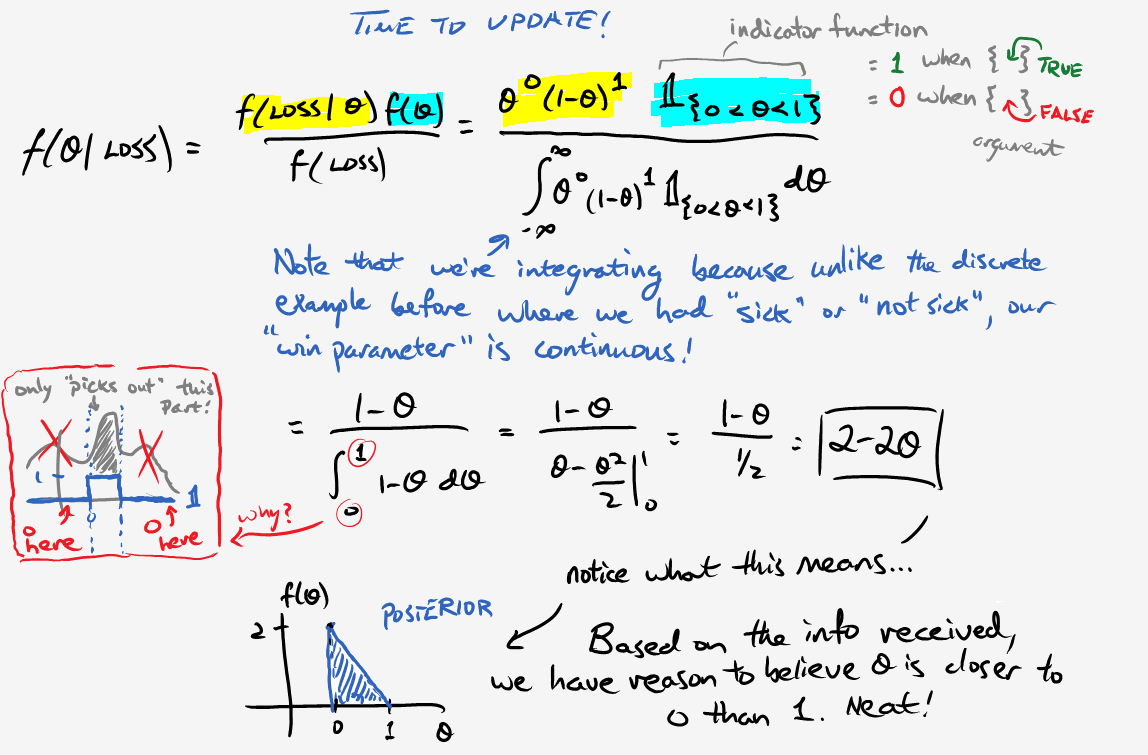 TIME TO UPDATE!
indicator function
= 1 when { } TRUE
= 0 when { } FALSE
argument
f(θ| LOSS) = f(LOSS| θ) f(θ) / f(LOSS) = θ^0 (1-θ)^1 𝟙_{0<θ<1} / ∫_{-∞}^{∞} θ^0 (1-θ)^1 𝟙_{0<θ<1} dθ
Note that we're integrating because unlike the discrete
example before where we had "sick" or "not sick", our
"win parameter" is continuous!
only "picks out" this
part!
1
0
1
0 here
0 here
why?
= 1-θ / ∫_0^1 1-θ dθ = 1-θ / θ - θ²/2 |_0^1 = 1-θ / 1/2 = 2-2θ
notice what this means...
f(θ)
POSTERIOR
2
0 1 θ
Based on the info received,
we have reason to believe θ is closer to
0 than 1. Neat!